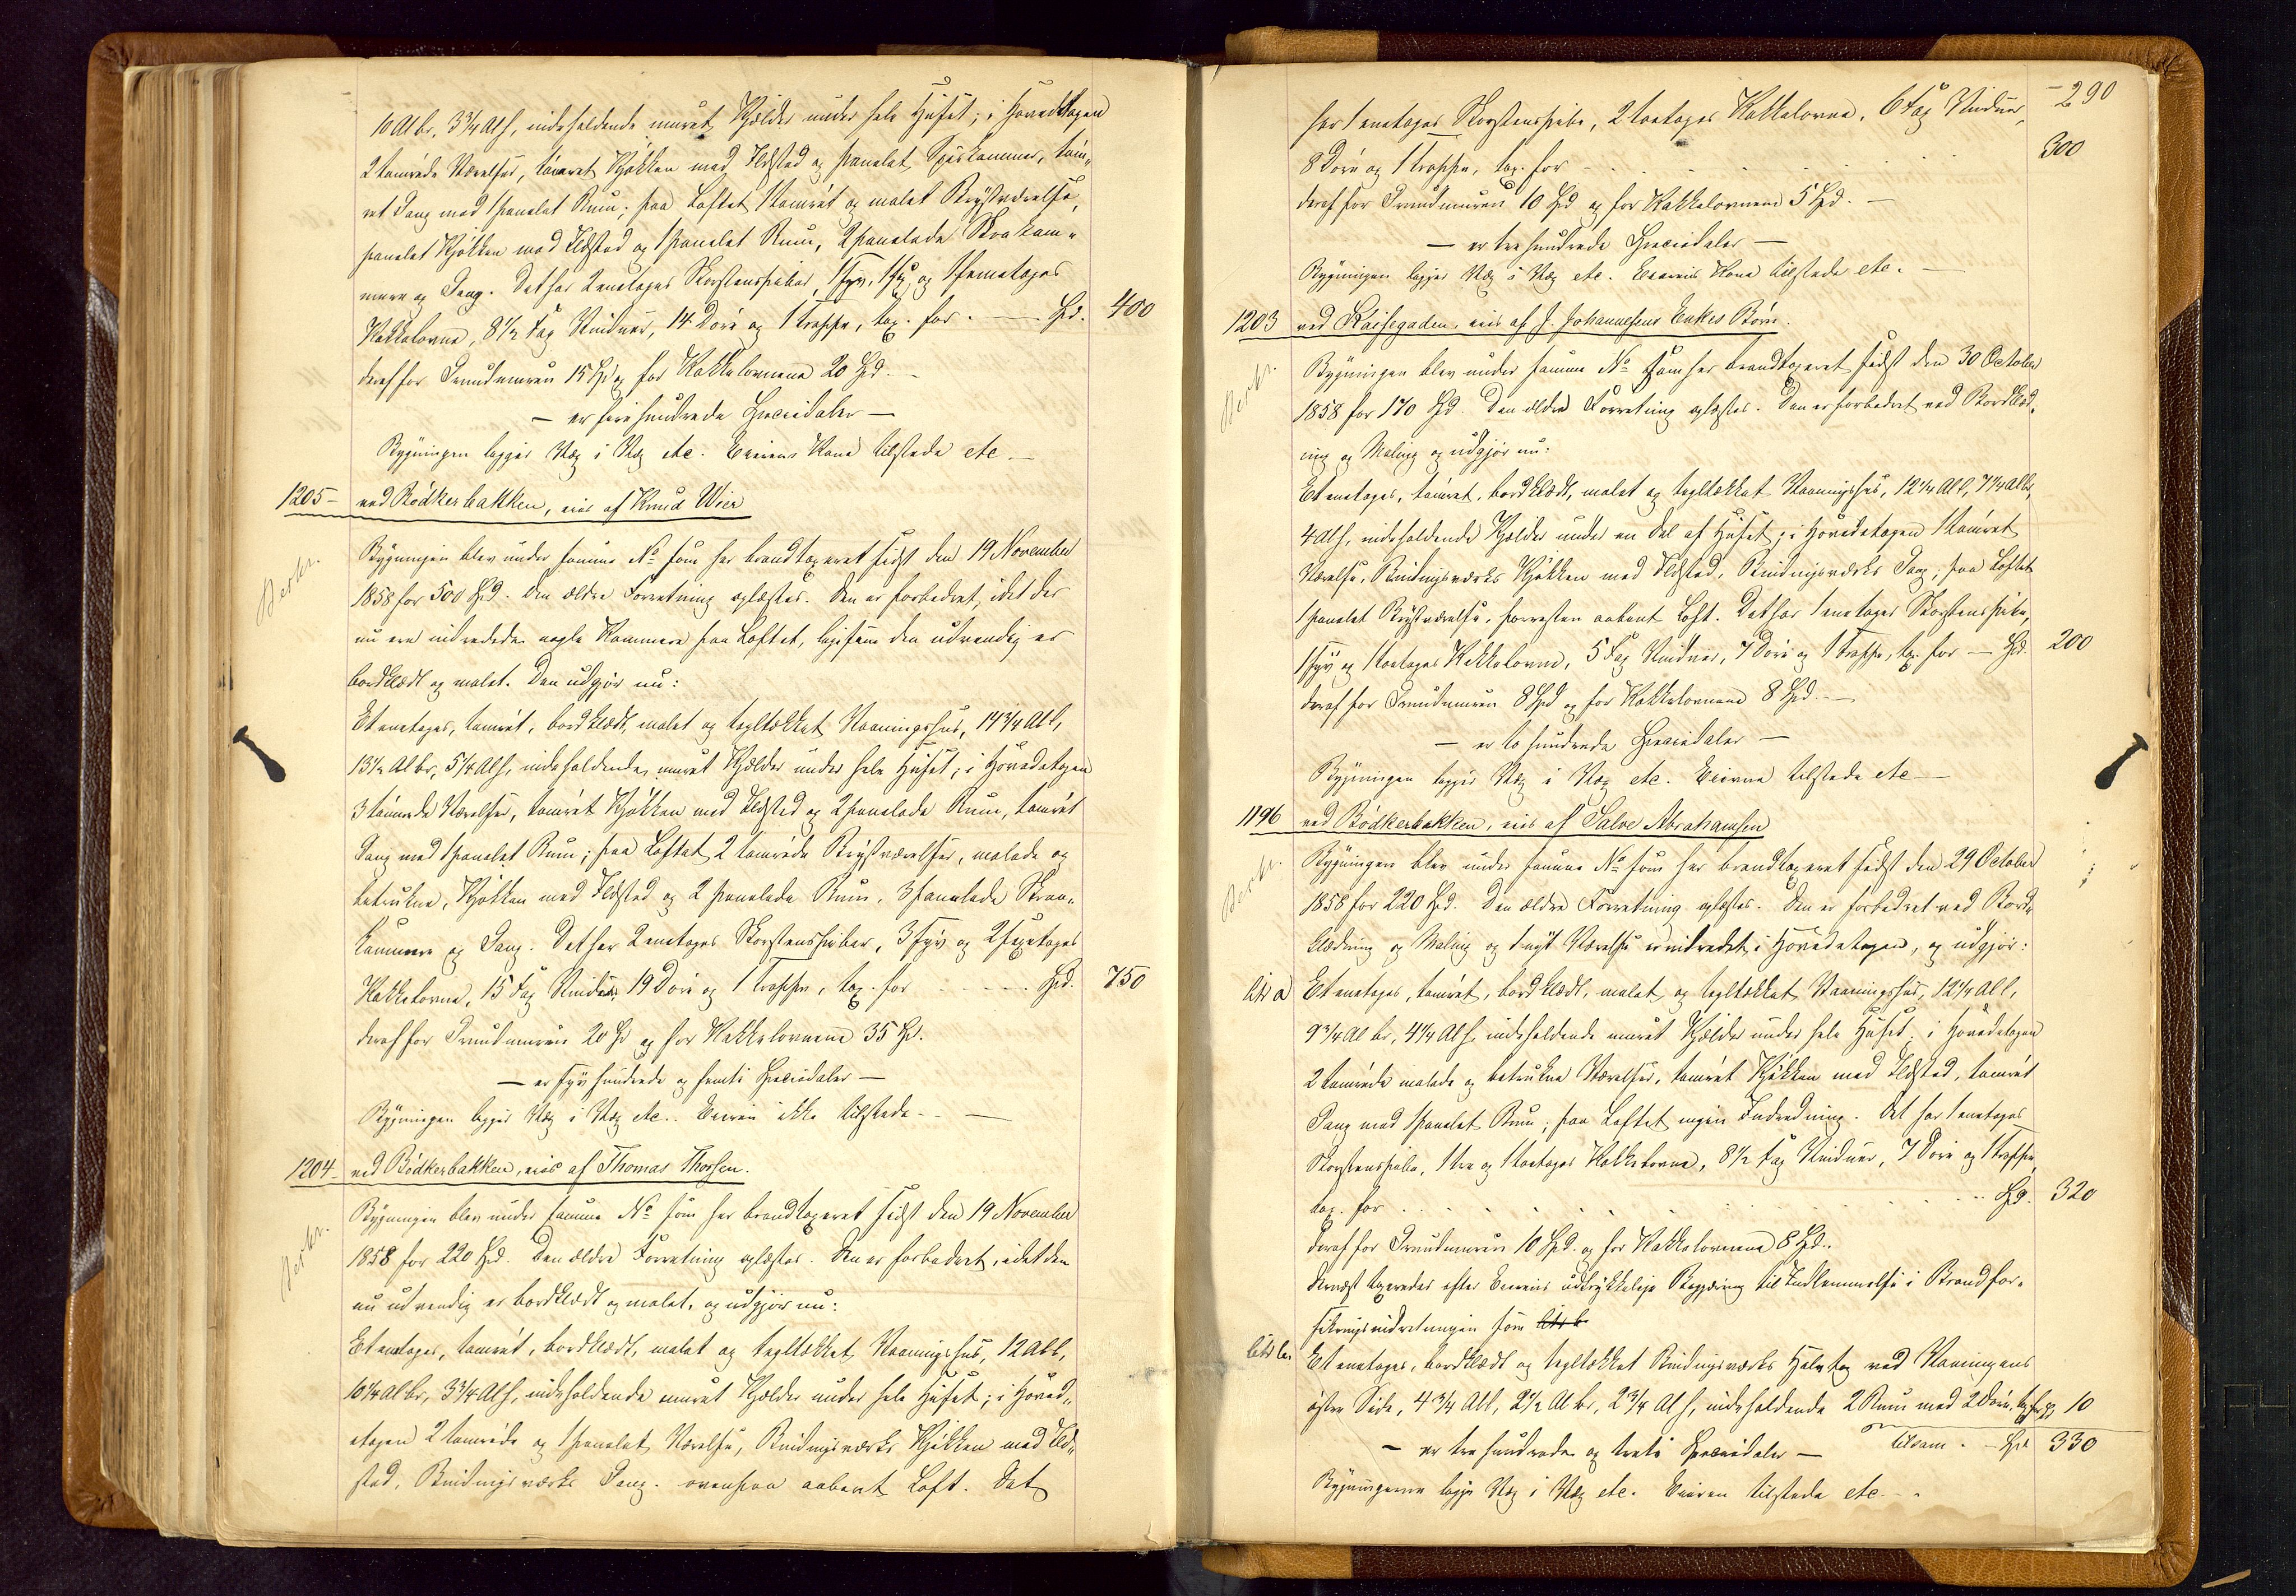 10 Al br, 3¾ Al h, indeholdende muret Kjelder under hele Huset; i Hovedetagen
2 tømrede Værelser, tømret Kjøkken med Ildsted og panelet Spiskammer, tøm-
ret Gang med 1 panelet Rum; paa Loftet 1 tømret og malet Brystværelse,
panelet Kjøkken med Ildsted og 1 panelet Rum, 2 panelede Skraakam-
mere og Gang. Det har 2 enetages Skorstenspiber, 1 fyr, 1 og 1 femetages
Kakkelovne, 8½ Fag Vinduer, 14 Døre og 1 Trappe, tax. for . — Spd. 400
deraf for Grundmuren 15 Spd og for Kakkelovnene 20 Spd. —
— er fire hundrede Speciedaler —
Bygningen ligger Væg i Væg etc. Eierens Kone tilstede etc. —
1205 — ved Bødkerbakken, eies af Knud Wier
Berkr.
Bygningen blev under samme No som her brandtaxeret sidst den 19 November
1858 for 500 Spd. Den ældre Forretning oplæstes. Den er forbedret, idet der
nu ere indredede nogle Kammere paa Loftet, ligesom den udvendig er
bordklædt og malet. Den udgjør nu:
Et enetages, tømret, bordklædt, malet og tegltækket Vaaningshus, 14¾ Al l,
13½ Al br, 5¼ Al h, indeholdende muret Kjelder under hele Huset; i Hovedetagen
3 tømrede Værelser, tømret Kjøkken med Ildsted og 2 panelede Rum, tømret
Gang med 1 panelet Rum; paa Loftet 2 tømrede Brystværelser, malede og
betrukne, Kjøkken med Ildsted og 2 panelede Rum, 3 panelede Skraa-
kammere og Gang. Det har 2 enetages Skorstenspiber, 3 fyr og 2 sexetages
Kakkelovne, 15 Fag Vinduer, 19 Døre og 1 Trappe, tax. for . . — . Spd. 750
deraf for Grundmuren 20 Spd og for Kakkelovnene 35 Spd.
— er syv hundrede og femti Speciedaler —
Bygningen ligger Væg i Væg etc. Eieren ikke tilstede. —
1204 — ved Bødkerbakken, eies af Thomas Thorsen.
Berkr.
Bygningen blev under samme No som her brandtaxeret sidst den 19 November
1858 for 220 Spd. Den ældre Forretning oplæstes. Den er forbedret, idet den
nu udvendig er bordklædt og malet, og udgjør nu:
Et enetages, tømret, bordklædt, malet og tegltækket Vaaningshus, 12 Al l,
10¼ Al br, 3¾ Al h, indeholdende muret Kjelder under hele Huset; i Hoved-
etagen 2 tømrede og 1 panelet Værelse, Bindingsværks Kjøkken med Ild-
sted, Bindingsværks Gang. ovenpaa aabent Loft. Det
290
har 1 enetages Skorstenspibe, 2 toetages Kakkelovne, 6 Fag Vinduer,
8 Døre og 1 Trappe, tax. for . . . . . 300
deraf for Grundmuren 10 Spd og for Kakkelovnene 5 Spd. —
— er tre hundrede Speciedaler —
Bygningen ligger Væg i Væg etc. Eierens Kone tilstede etc. —
1203 ved Raisegaden, eies af J. Johannesens Enkes Børn.
Berkr.
Bygningen blev under samme No som her brandtaxeret sidst den 30 October
1858 for 170 Spd. Den ældre Forretning oplæstes. Den er forbedret ved Bordklæd-
ning og Maling og udgjør nu:
Et enetages, tømret, bordklædt, malet og tegltækket Vaaningshus, 12¼ Al l, 7¼ Al br,
4 Al h, indeholdende Kjelder under en Del af Huset; i Hovedetagen 1 tømret
Værelse, Bindingsværks Kjøkken med Ildsted, Bindingsværks Gang; paa Loftet
1 panelet Brystværelse, forresten aabent Loft. Det har 1 enetages Skorstenspibe,
1 fyr og 1 toetages Kakkelovne, 5 Fag Vinduer, 7 Døre og 1 Trappe, tax. for — Spd. 200
deraf for Grundmuren 8 Spd og for Kakkelovnene 8 Spd. —
— er to hundrede Speciedaler —
Bygningen ligger Væg i Væg etc. Eierne tilstede etc —
1196 ved Bødkerbakken, eies af Salve Abrahamsen
Berkr.
Bygningen blev under samme No som her brandtaxeret sidst den 29 October
1858 for 220 Spd. Den ældre Forretning oplæstes. Den er forbedret ved Bord-
klædning og Maling og 1 nyt Værelse er indredet i Hovedetagen, og udgjør:
Litr a) Et enetages, tømret, bordklædt, malet og tegltækket Vaaningshus, 12¼ Al l,
9¾ Al br, 4¼ Al h, indeholdende muret Kjelder under hele Huset; i Hovedetagen
2 tømrede malede og betrukne Værelser, tømret Kjøkken med Ildsted, tømret
Gang med 1 panelet Rum; paa Loftet ingen Indredning. Det har 1 enetages
Skorstenspibe, 1 tre og 1 toetages Kakkelovne, 8½ Fag Vinduer, 7 Døre og 1 Trappe,
tax. for . . . . . Spd. 320
deraf for Grundmuren 10 Spd. og for Kakkelovnene 8 Spd..
Dernæst taxeredes efter Eierens udtrykkelige Begjæring til Indlemmelse i Brandfor-
sikringsindretningen som Litr b
Litr b. Et enetages, bordklædt og tegltækket Bindingsværks Halvtag ved Vaaningens
østre Side, 4¾ Al l, 2½ Al br, 2¾ Al h, indeholdende 2 Rum med 2 Døre, tax. for 10
— er tre hundrede og treti Speciedaler — tilsam. — Spd 330
Bygningerne ligger Væg i Væg etc. Eieren tilstede etc. .